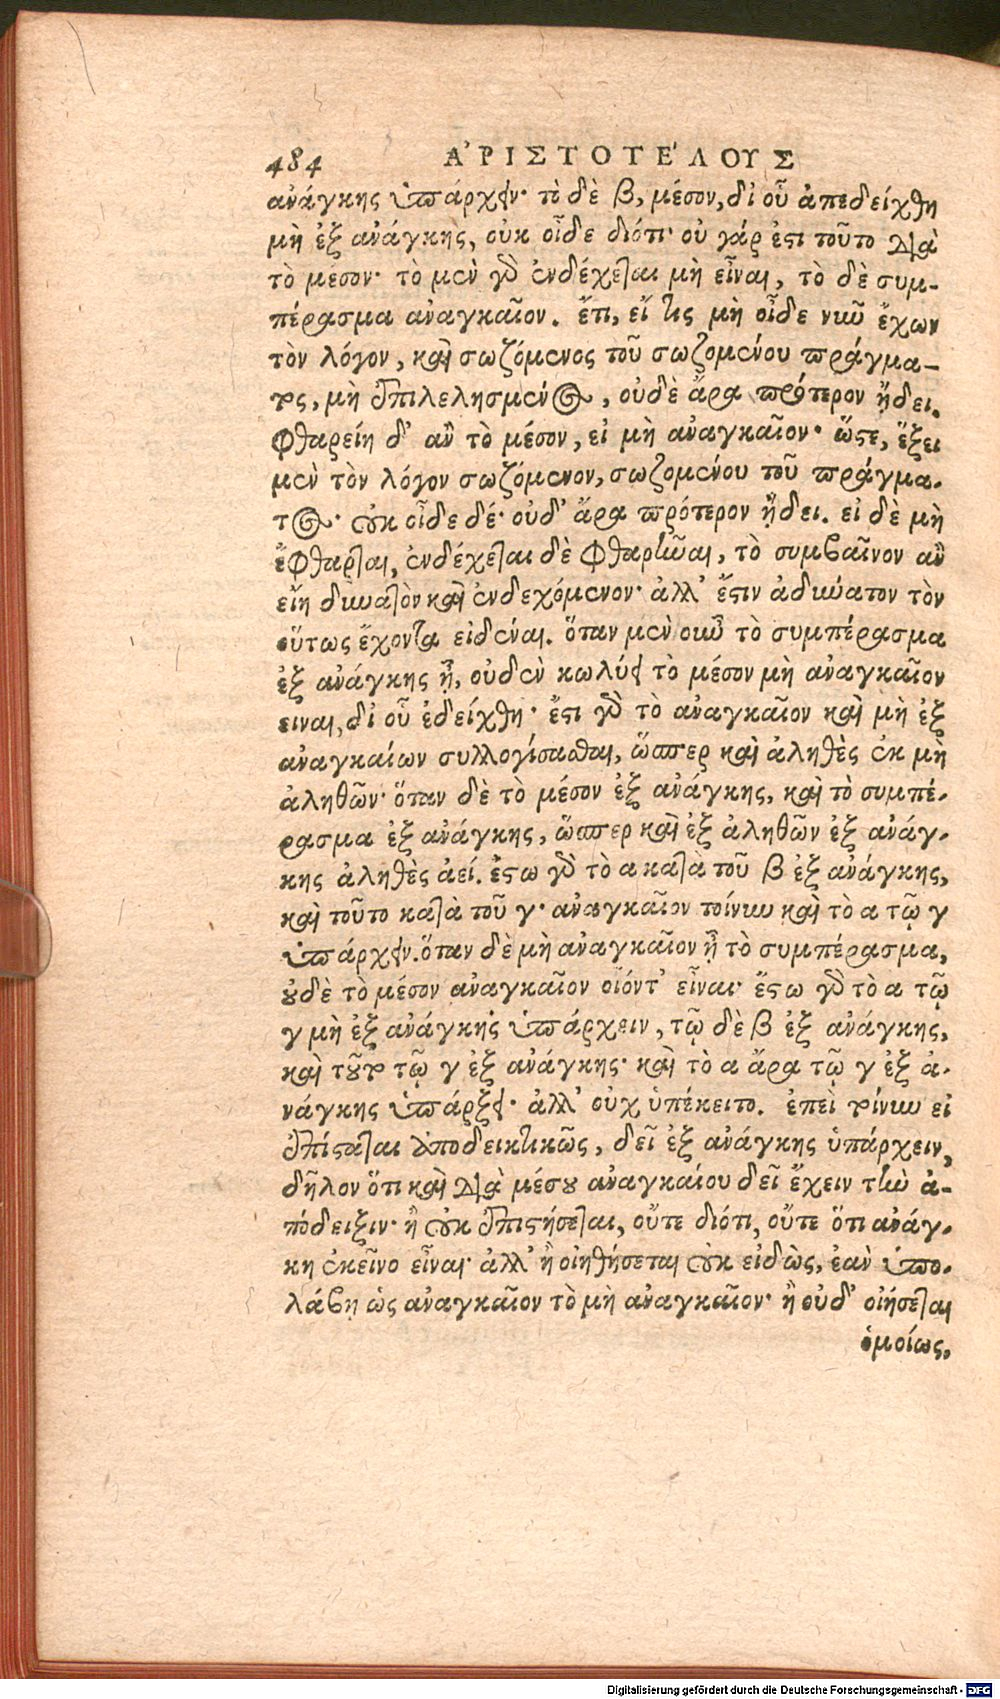 484 ἈΡΙΣΤΟΤΈΛΟΥΣ
ανάγκης ὑπάρχειν· τὸ δὲ β, μέσον, δι οὗ ἀπεδείχθη
μὴ ἐξ ανάγκης, ουκ οἶδε διότι· οὐ γάρ ἐστι τοῦτο διὰ
τὸ μέσον· τὸ μὲν γὸ ἐνδέχεται μὴ εἶναι, τὸ δὲ συμ-
πέρασμα αναγκαῖον. ἔτι, εἴ τις μὴ οἶδε νῦν ἔχων
τὸν λόγον, καὶ σωζόμενος τοῦ σωζομένου πράγμα-
τος, μὴ ἐπιλελησμένος, οὐδὲ ἄρα πρότερον ᾔδει.
φθαρείη δ' αν τὸ μέσον, εἰ μὴ αναγκαῖον· ὥστε, ἕξει
μὲν τὸν λόγον σωζόμενον, σωζομένου τοῦ πράγμα-
τος· οὐκ οἶδε δέ· οὐδ' ἄρα πρότερον ᾔδει. εἰ δὲ μὴ
ἔφθαρται, ἐνδέχεται δὲ φθαρῆναι, τὸ συμβαῖνον αν
εἴη δυνατὸν καὶ ἐνδεχόμενον· ἀλλ' ἔστιν αδύνατον τὸν
οὕτως ἔχοντα εἰδέναι. ὅταν μὲν οὖν τὸ συμπέρασμα
ἐξ ανάγκης ᾖ, οὐδὲν κωλύει τὸ μέσον μὴ αναγκαῖον
ειναι, δι οὗ ἐδείχθη· ἔστι γὸ τὸ αναγκαῖον καὶ μὴ ἐξ
αναγκαίων συλλογίσασθαι, ὥσπερ καὶ ἀληθὲς ἐκ μὴ
ἀληθῶν· ὅταν δὲ τὸ μέσον ἐξ ανάγκης, καὶ τὸ συμπέ-
ρασμα ἐξ ανάγκης, ὥσπερ καὶ ἐξ ἀληθῶν ἐξ ανάγ-
κης ἀληθὲς ἀεί. ἔστω γὸ τὸ α κατὰ τοῦ β ἐξ ανάγκης,
καὶ τοῦτο κατὰ τοῦ γ· αναγκαῖον τοίνυν καὶ τὸ α τῷ γ
ὑπάρχειν. ὅταν δὲ μὴ αναγκαῖον ᾖ τὸ συμπέρασμα,
οὐδὲ τὸ μέσον αναγκαῖον οἷόντ' εἶναι· ἔστω γὸ τὸ α τῷ
γ μὴ ἐξ ανάγκης ὑπάρχειν, τῷ δὲ β ἐξ ανάγκης,
καὶ τοῦτο τῷ γ ἐξ ανάγκης· καὶ τὸ α ἄρα τῷ γ ἐξ ἀ-
νάγκης ὑπάρξει· ἀλλ' οὐχ ὑπέκειτο. ἐπεὶ τοίνυν εἰ
ἐπίσταται ἀποδεικτικῶς, δεῖ ἐξ ανάγκης ὑπάρχειν,
δῆλον ὅτι καὶ διὰ μέσου αναγκαίου δεῖ ἔχειν τὴν ἀ-
πόδειξιν· ἢ οὐκ ἐπιστήσεται, οὔτε διότι, οὔτε ὅτι ανάγ-
κη ἐκεῖνο εἶναι· ἀλλ' ἢ οἰηθήσεται οὐκ εἰδὼς, ἐὰν ὑπο-
λάβῃ ὡς αναγκαῖον τὸ μὴ αναγκαῖον· ἢ οὐδ' οἰήσεται
ὁμοίως,
Digitalisierung gefördert durch die Deutsche Forschungsgemeinschaft - DFG